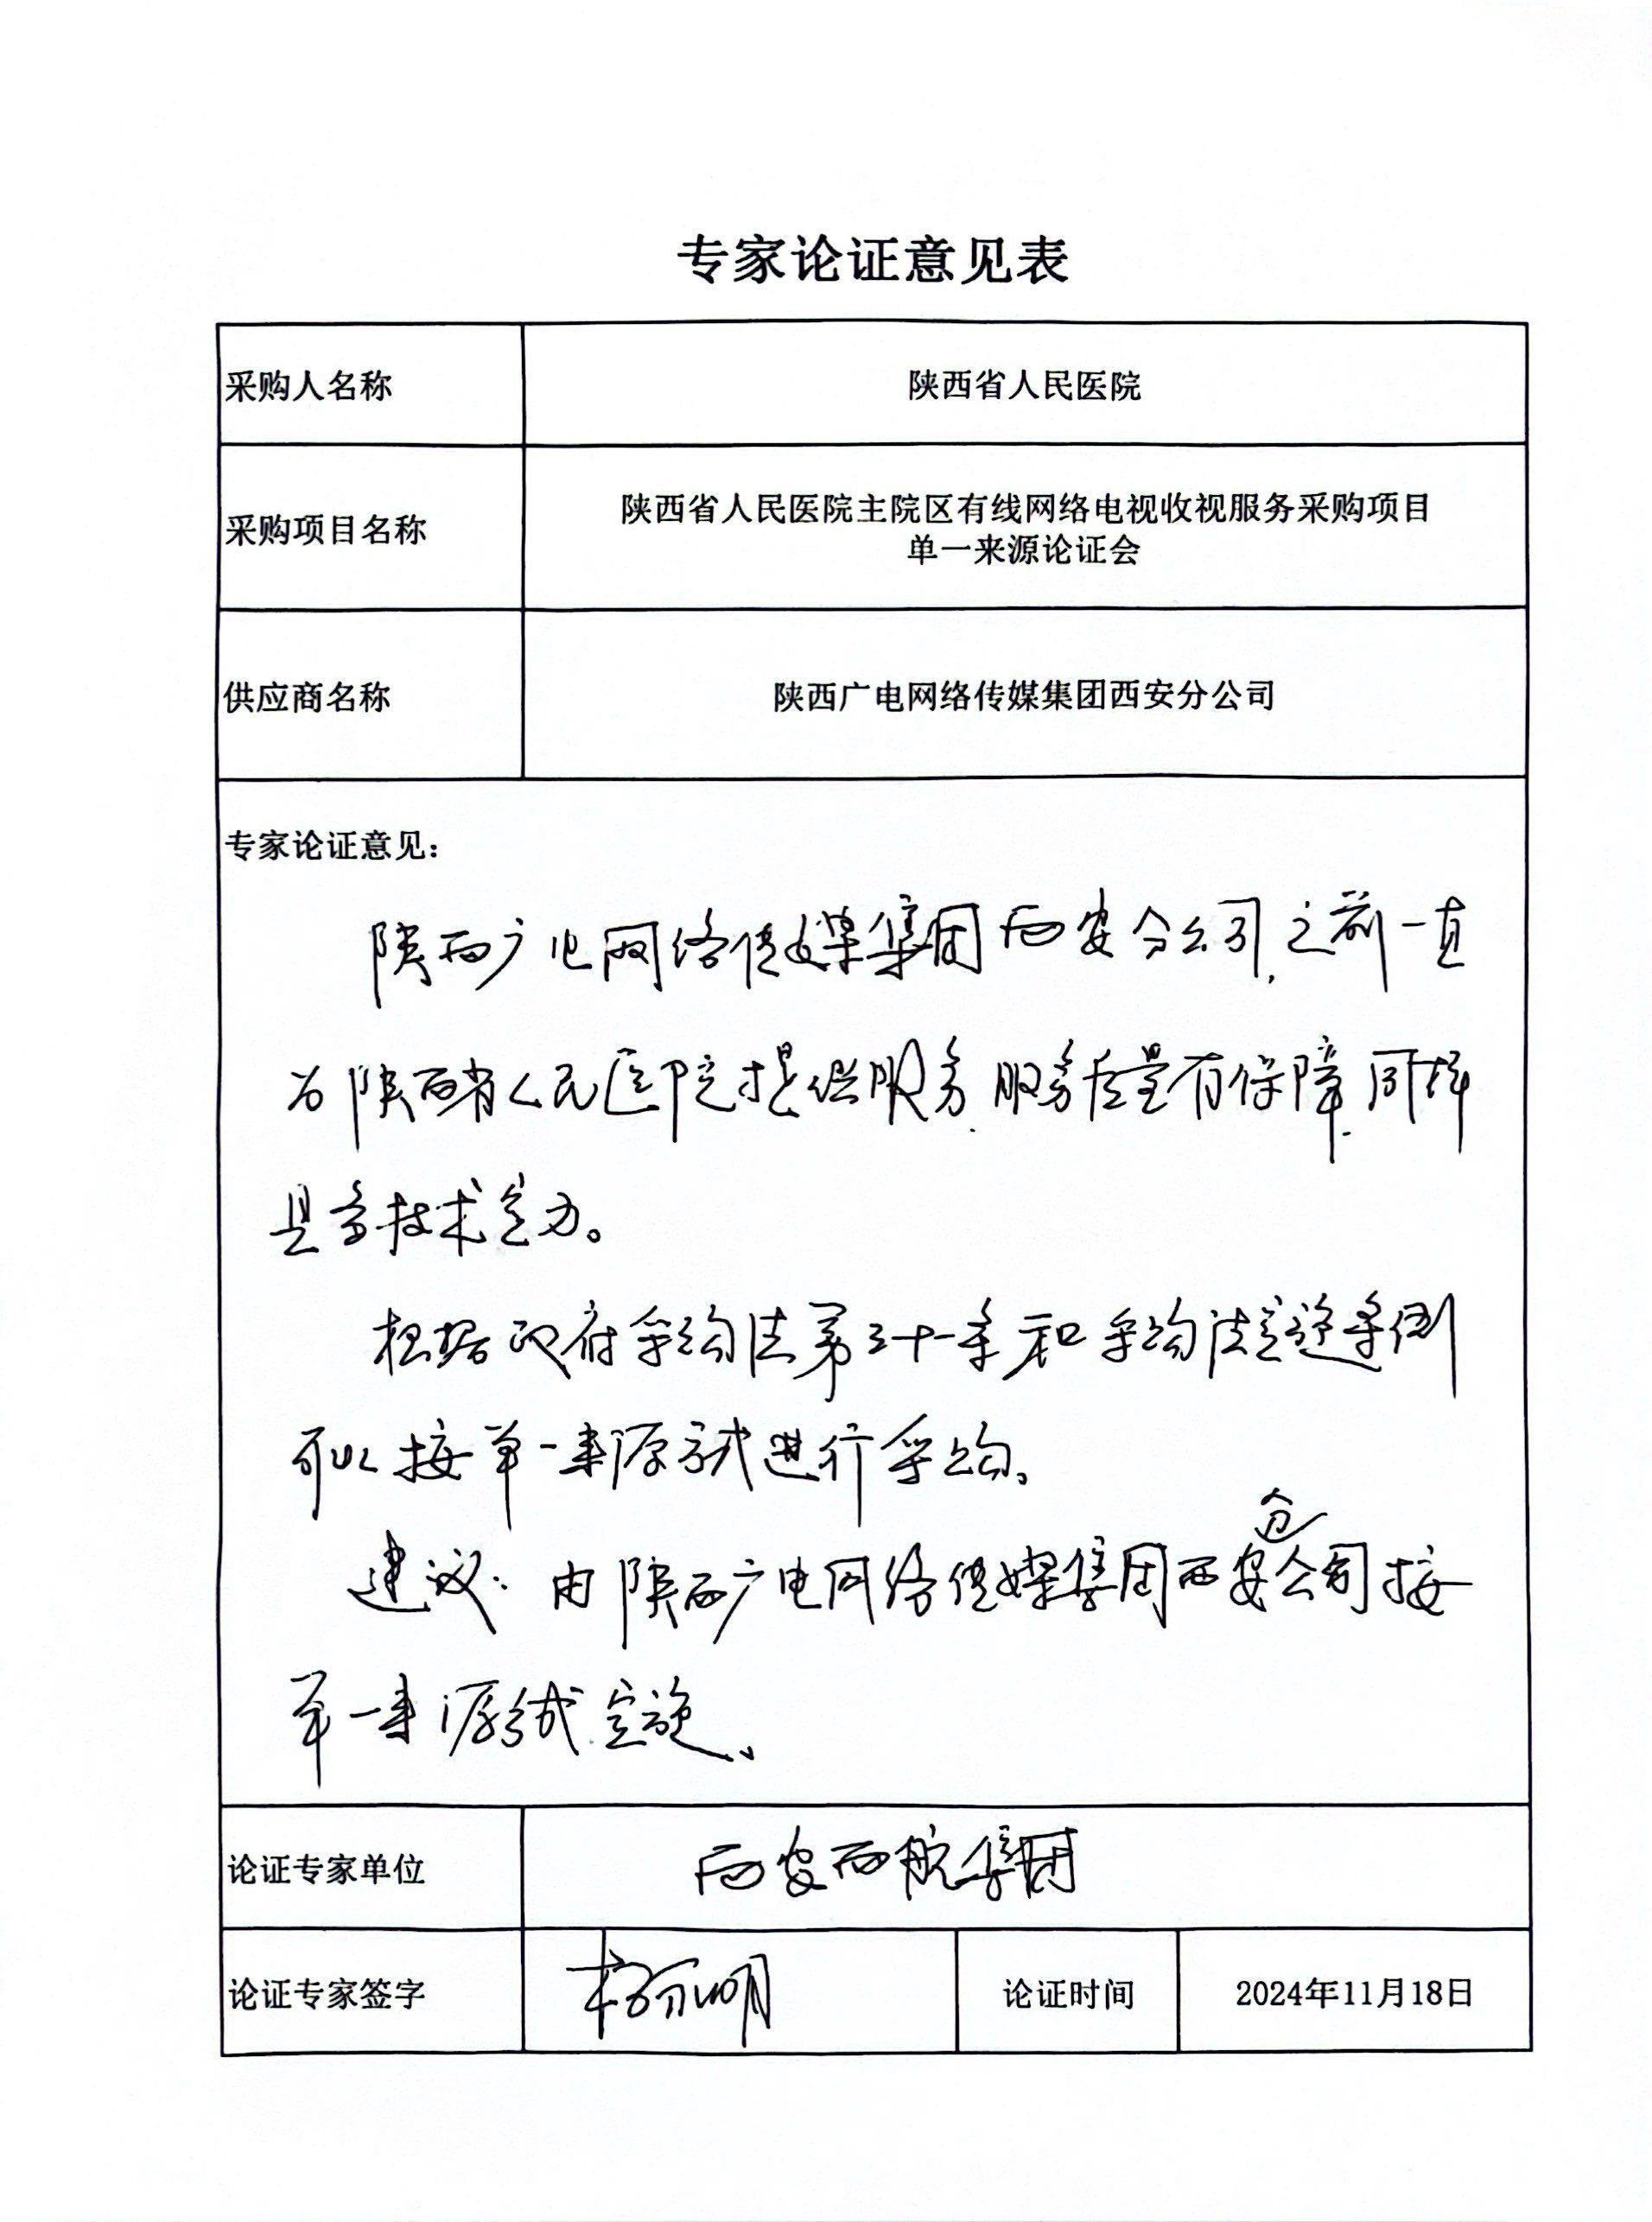 专家论证意见表
采购人名称
陕西省人民医院
采购项目名称
陕西省人民医院主院区有线网络电视收视服务采购项目
单一来源论证会
供应商名称
陕西广电网络传媒集团西安分公司
专家论证意见：
陕西广电网络传媒集团西安分公司，之前一直
为陕西省人民医院提供服务，服务质量有保障，同样
具备技术实力。
根据政府采购法第三十一条和采购法实施条例
可以按单一来源方式进行采购。
建议：由陕西广电网络传媒集团西安分公司按
单一来源方式实施。
论证专家单位
西安西航集团
论证专家签字
论证时间
2024年11月18日